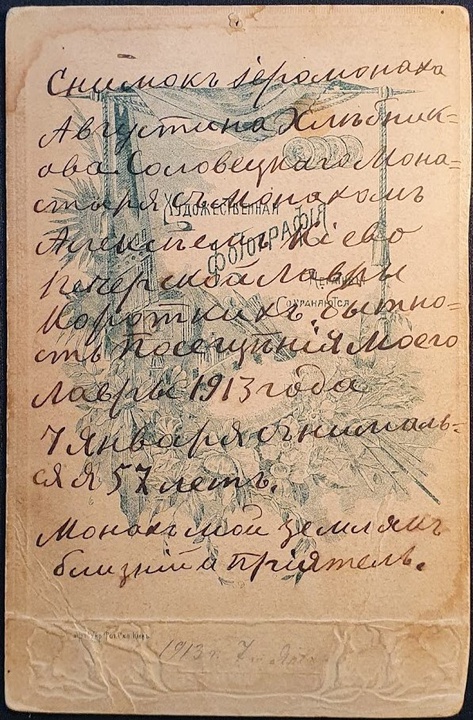 Снимокъ іеромонаха
Августина Хлѣбник-
ова Соловецкаго Мона-
стыря съ монахомъ
Кіево
Печерской Лавры
бытно-
сть посещенія моего
Лавры 1913 года
7 Января снималь-
ся я 57 летъ.
Монахъ мой землякъ
близкій и пріятель.
ХУДОЖЕСТВЕННАЯ
ФОТОГРАФІЯ
НЕГАТИВЫ
СОХРАНЯЮТСЯ
1913 г. 7